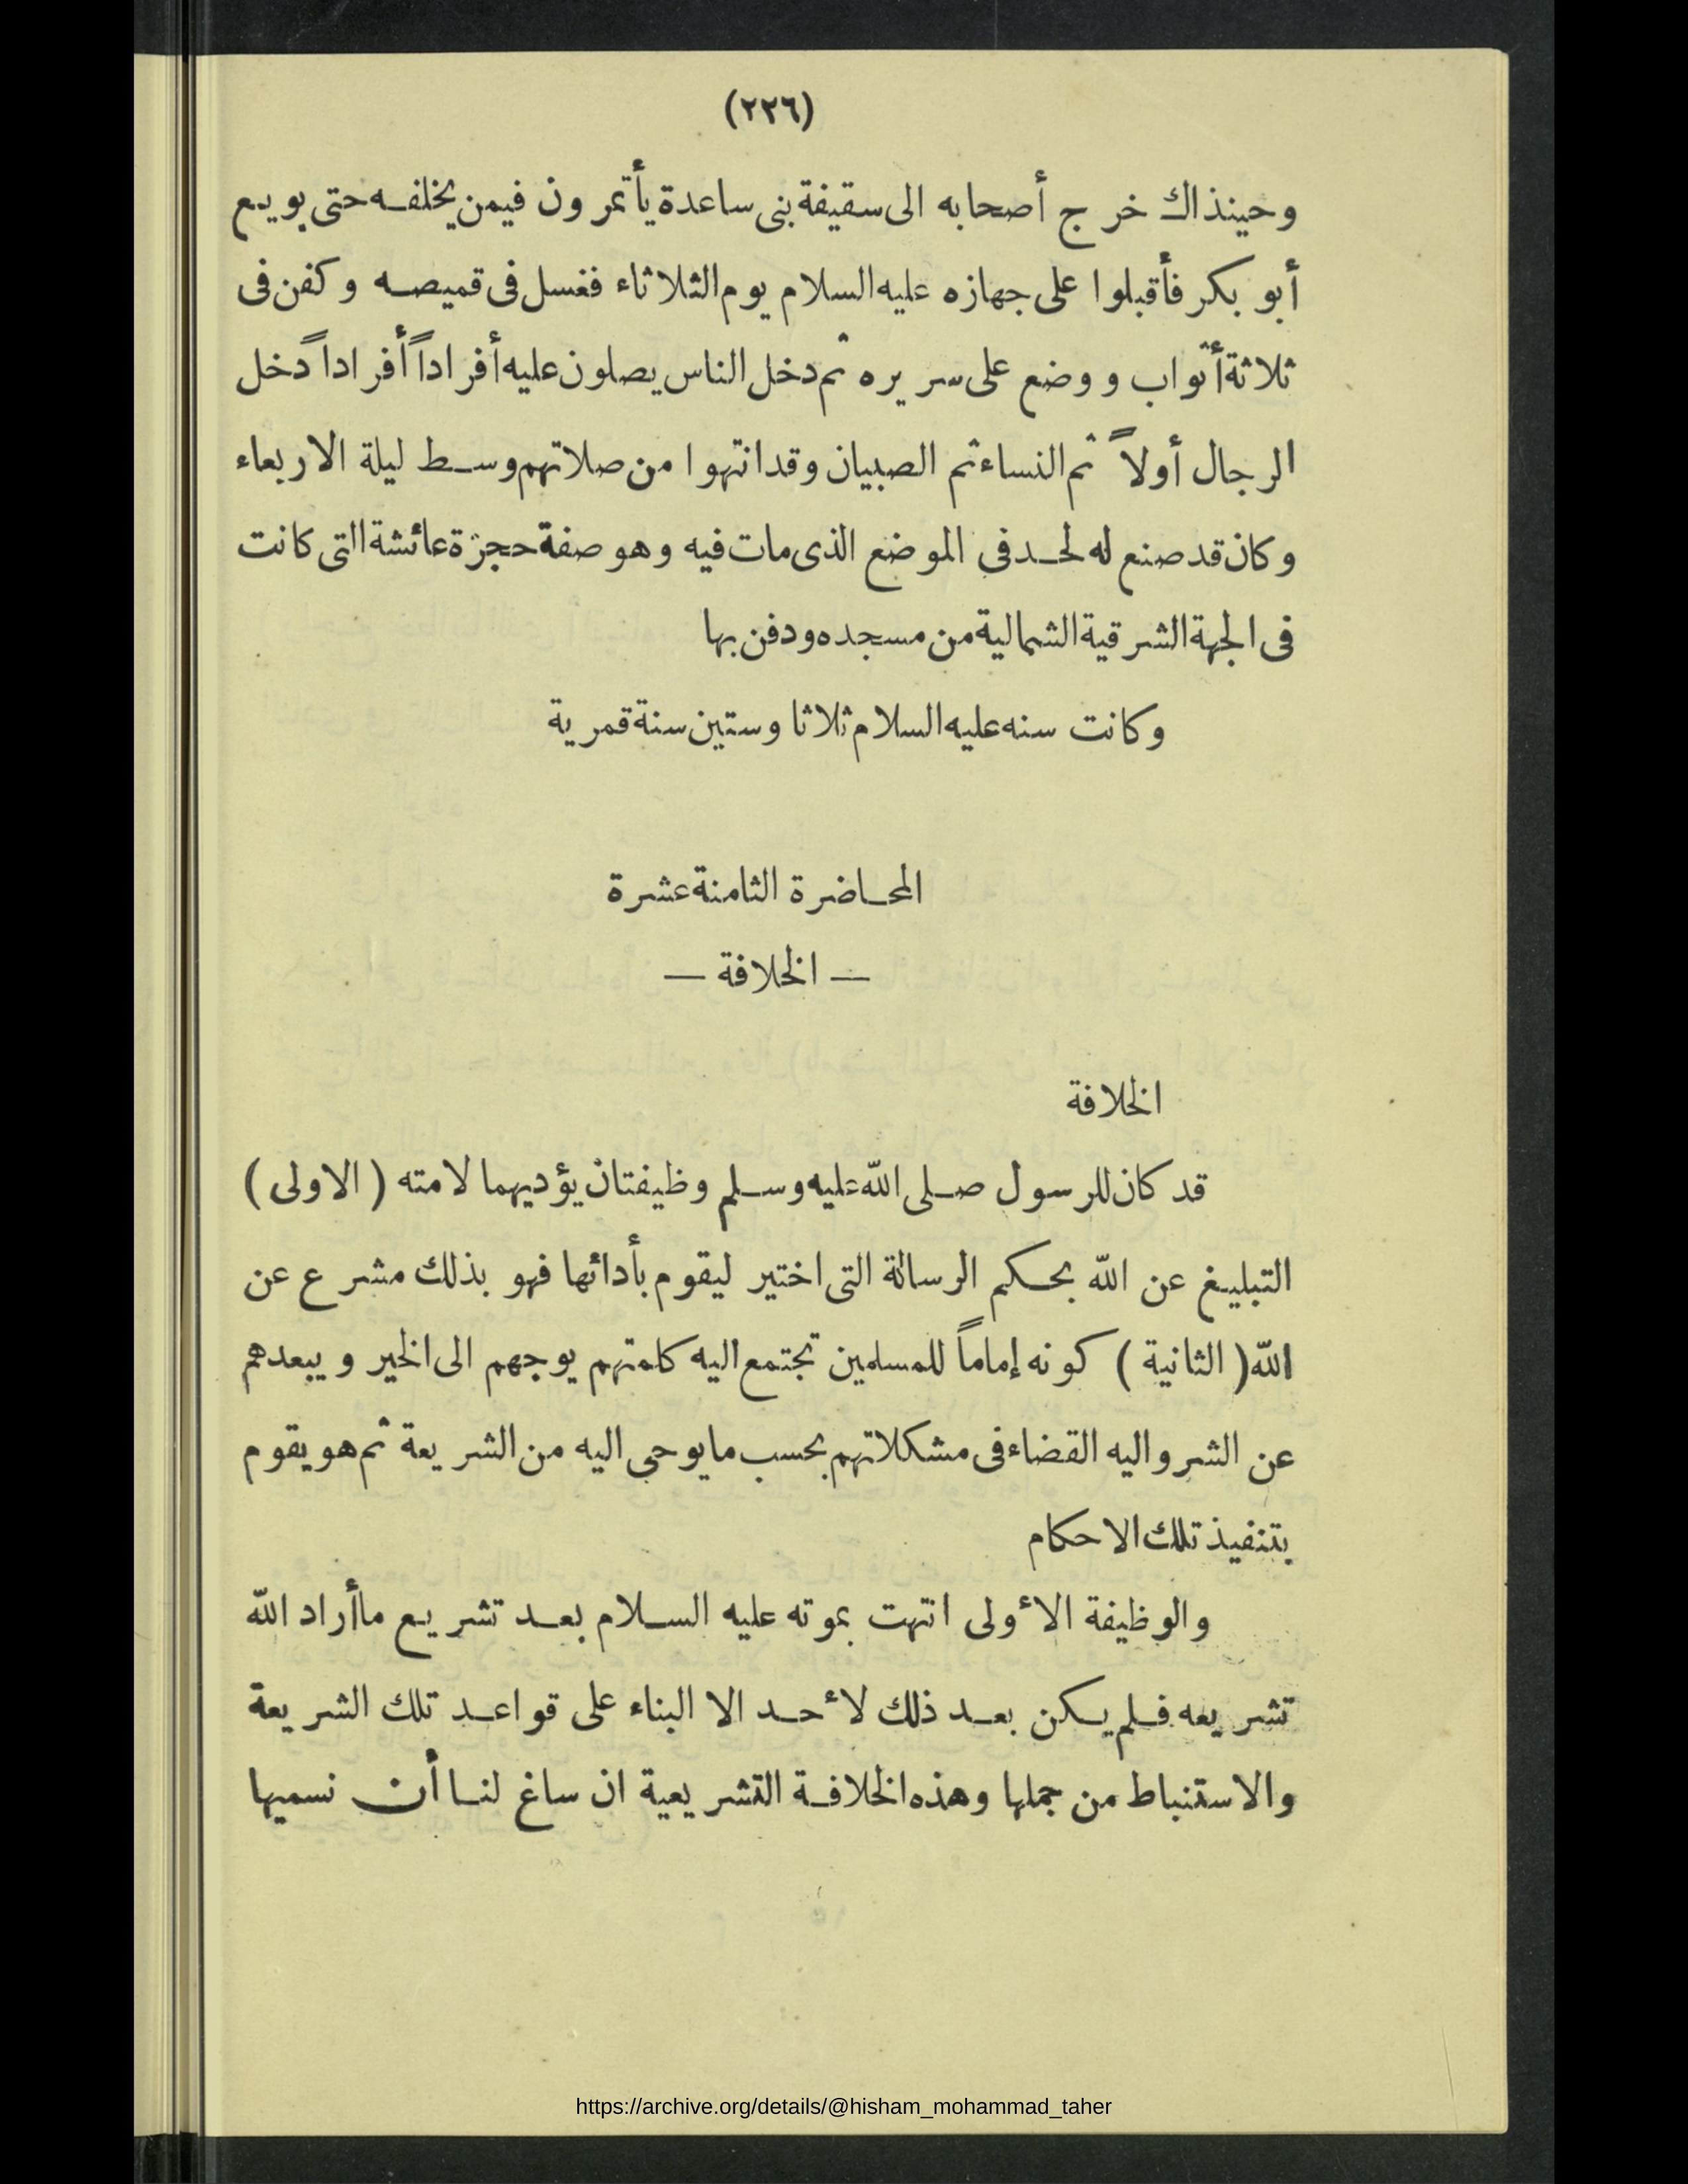 (٢٢٦)
وحينذاك خرج أصحابه الى سقيفة بنى ساعدة يأتمرون فيمن يخلفه حتى بويع
أبو بكر فأقبلوا على جهازه عليه السلام يوم الثلاثاء فغسل فى قميصه وكفن فى
ثلاثة أثواب ووضع على سريره ثم دخل الناس يصلون عليه أفراداً أفراداً دخل
الرجال أولاً ثم النساء ثم الصبيان وقد انتهوا من صلاتهم وسط ليلة الاربعاء
وكان قد صنع له لحد فى الموضع الذى مات فيه وهو صفة حجرة عائشة التى كانت
فى الجهة الشرقية الشمالية من مسجده ودفن بها
وكانت سنه عليه السلام ثلاثا وستين سنة قمرية
المحاضرة الثامنة عشرة
— الخلافة —
الخلافة
قد كان للرسول صلى الله عليه وسلم وظيفتان يؤديهما لامته ( الاولى )
التبليغ عن الله بحكم الرسالة التى اختير ليقوم بأدائها فهو بذلك مشرع عن
الله ( الثانية ) كونه إماماً للمسلمين تجتمع اليه كلمتهم يوجههم الى الخير ويبعدهم
عن الشر واليه القضاء فى مشكلاتهم بحسب مايوحى اليه من الشريعة ثم هو يقوم
بتنفيذ تلك الاحكام
والوظيفة الأولى انتهت بموته عليه السلام بعد تشريع ماأراد الله
تشريعه فلم يكن بعد ذلك لأحد الا البناء على قواعد تلك الشريعة
والاستنباط من جملها وهذه الخلافة التشريعية ان ساغ لنا أن نسميها
https://archive.org/details/@hisham_mohammad_taher